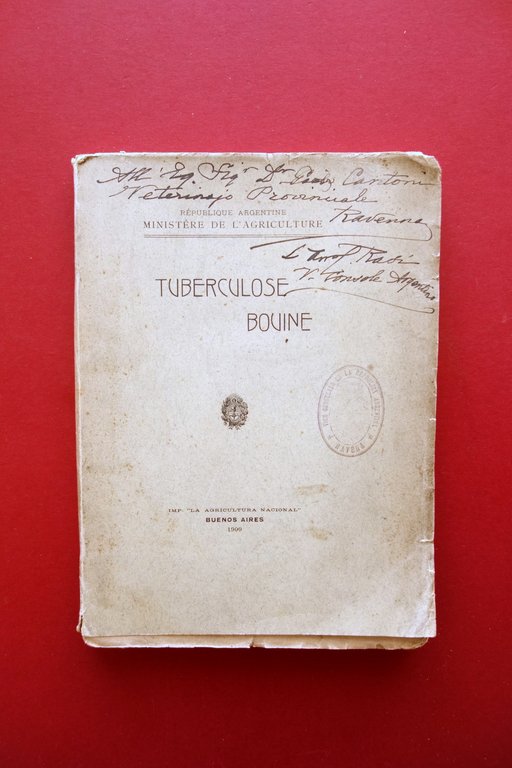 All' Eg. Sigr Dr Cantoni
Veterinajo Provinciale
Ravenna
RÉPUBLIQUE ARGENTINE
MINISTÉRE DE L'AGRICULTURE
V. Console Argentino
TUBERCULOSE
BOVINE
IMP. "LA AGRICULTURA NACIONAL"
BUENOS AIRES
1909